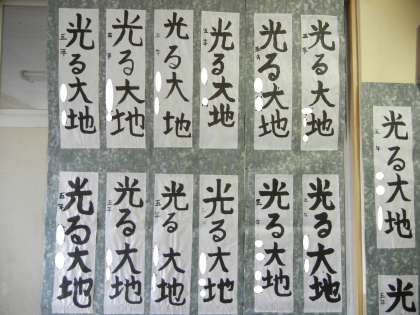 光る大地
五年
光る大地
五年
光る大地
五年
光る大地
五年
光る大地
五年
光る大地
五年
光る大地
五年
光る大地
五年
光る大地
五年
光る大地
五年
光る大地
五年
光る大地
五年
光る大地
五年
光